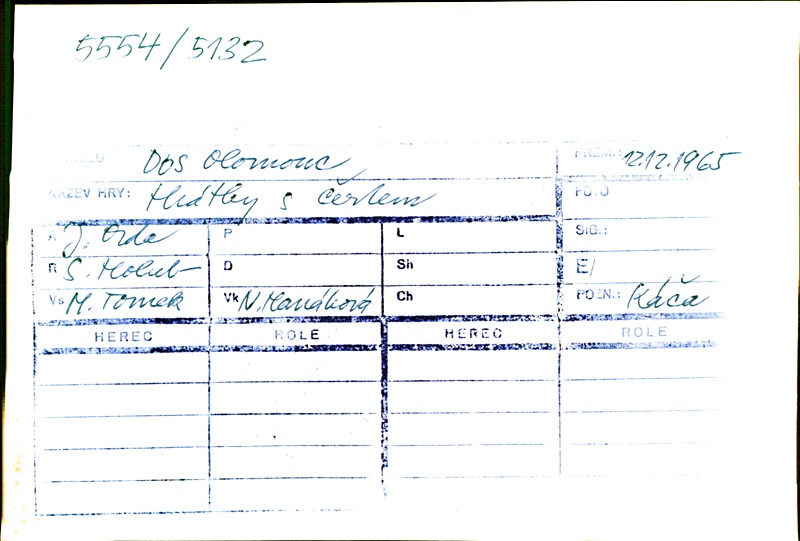 5554/5132
DIVADLO DOS Olomouc PREM.: 12.12.1965
NÁZEV HRY: Hrátky s čertem FOTO
A J. Drda P L SIG.:
R S. Holub D Sh E/
Vs M. Tomek Vk N. Hanáková Ch POZN.: Káča
HEREC ROLE HEREC ROLE